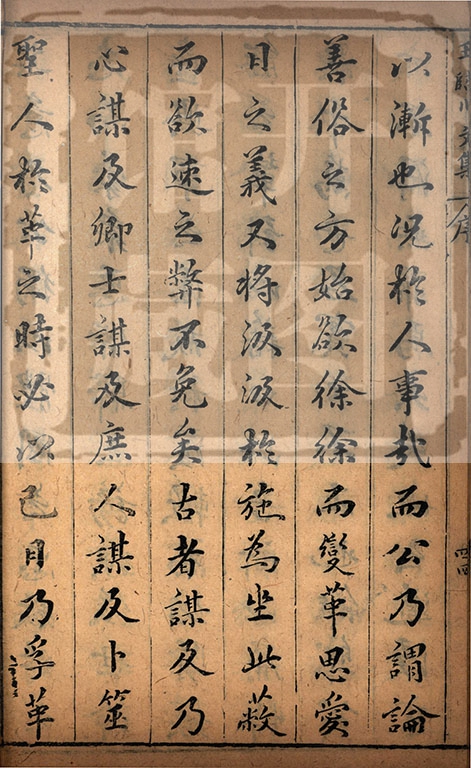 以漸也况於人事哉而公乃謂論
善俗之方始欲徐徐而變革思愛
日之義又將汲汲於施為坐此蔽
而欲速之弊不免矣古者謀及乃
心謀及卿士謀及庶人謀及卜筮
聖人於革之時必以己日乃孚革